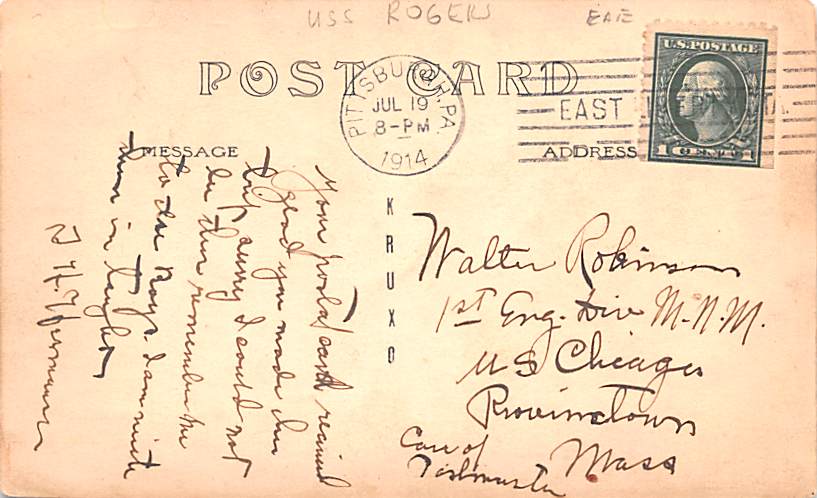 USS ROGERS
POST CARD
PITTSBURGH, PA.
JUL 19
8-PM
1914
EAST
U.S. POSTAGE
1 CENT 1
MESSAGE
ADDRESS
KRUXO
Your postal card received
glad you made the
trip sorry I could not
be there remember me
to the Boys. I am with
them in
Walter Robinson
1st Eng. Div M.N.M.
US Chicago
Provincetown
Mass
Care of
Postmaster